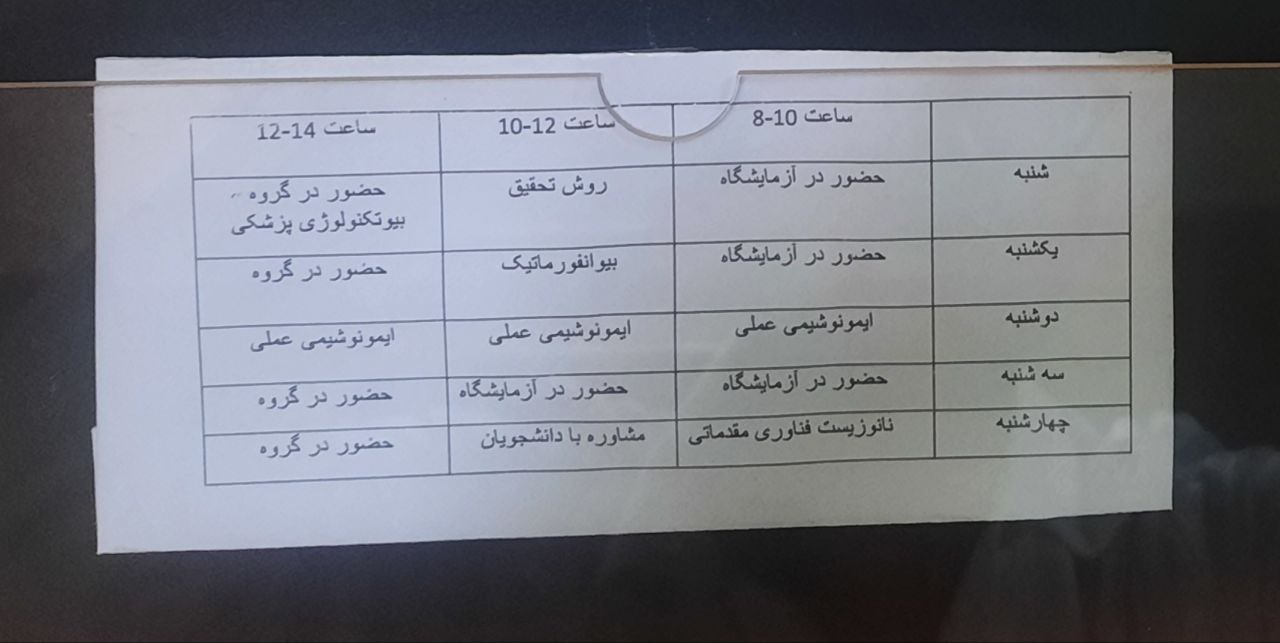 ساعت 8-10 ساعت 10-12 ساعت 12-14
شنبه حضور در آزمایشگاه روش تحقیق حضور در گروه
بیوتکنولوژی پزشکی
یکشنبه حضور در آزمایشگاه بیوانفورماتیک حضور در گروه
دوشنبه ایمونوشیمی عملی ایمونوشیمی عملی ایمونوشیمی عملی
سه شنبه حضور در آزمایشگاه حضور در آزمایشگاه حضور در گروه
چهارشنبه نانوزیست فناوری مقدماتی مشاوره با دانشجویان حضور در گروه